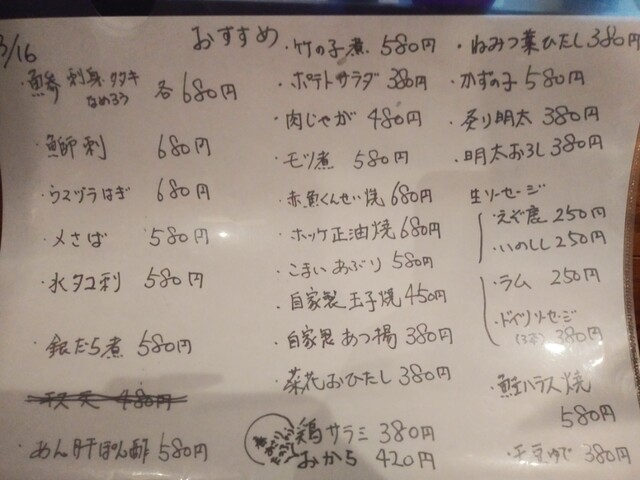 3/16
おすすめ
・鯵 刺身・タタキ
なめろう 各680円
・鰤刺 680円
・ウスヅラはぎ 680円
・メさば 580円
・水タコ刺 580円
・銀だら煮 580円
480円
・あん肝ぽん酢 580円
・竹の子煮 580円
・ポテトサラダ 380円
・肉じゃが 480円
・モツ煮 580円
・赤魚くんせい焼 680円
・ホッケ正油焼 680円
・こまいあぶり 580円
・自家製玉子焼 450円
・自家製あつ揚 380円
・菜花おひたし 380円
鶏サラミ 380円
おから 420円
・ねみつ葉ひたし 380円
・かずの子 580円
・炙り明太 380円
・明太おろし 380円
生ソーセージ
・えぞ鹿 250円
・いのしし 250円
・ラム 250円
・ドイツソーセージ
(3本) 380円
・鮭ハラス焼
580円
ゆで 380円